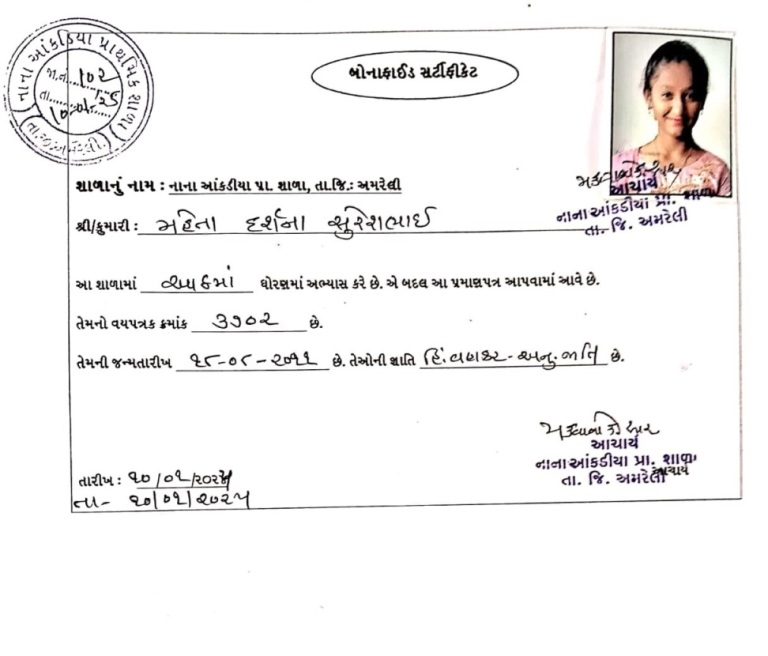 નાના આંકડિયા પ્રાથમિક શાળા
જા.નં. 102
તા.
તા.જી.અમરેલી.
બોનાફાઈડ સર્ટીફીકેટ
શાળાનું નામ : નાના આંકડીયા પ્રા. શાળા, તા.જિ.: અમરેલી
આચાર્ય
નાના આંકડીયા પ્રા. શાળા
તા. જિ. અમરેલી
શ્રી/કુમારી : મહેતા દર્શના સુરેશભાઈ
આ શાળામાં આઠમાં ધોરણમાં અભ્યાસ કરે છે. એ બદલ આ પ્રમાણપત્ર આપવામાં આવે છે.
તેમનો વયપત્રક ક્રમાંક ૩૭૦૨ છે.
તેમની જન્મતારીખ ૧૮-૦૮-૨૦૧૧ છે. તેઓની જ્ઞાતિ હિં.વણકર-અનુ.જાતિ છે.
આચાર્ય
નાના આંકડીયા પ્રા. શાળા
તા. જિ. અમરેલી આચાર્ય
તારીખ : ૧૦/૦૧/૨૦૨૫
તા- ૧૦/૦૧/૨૦૨૫